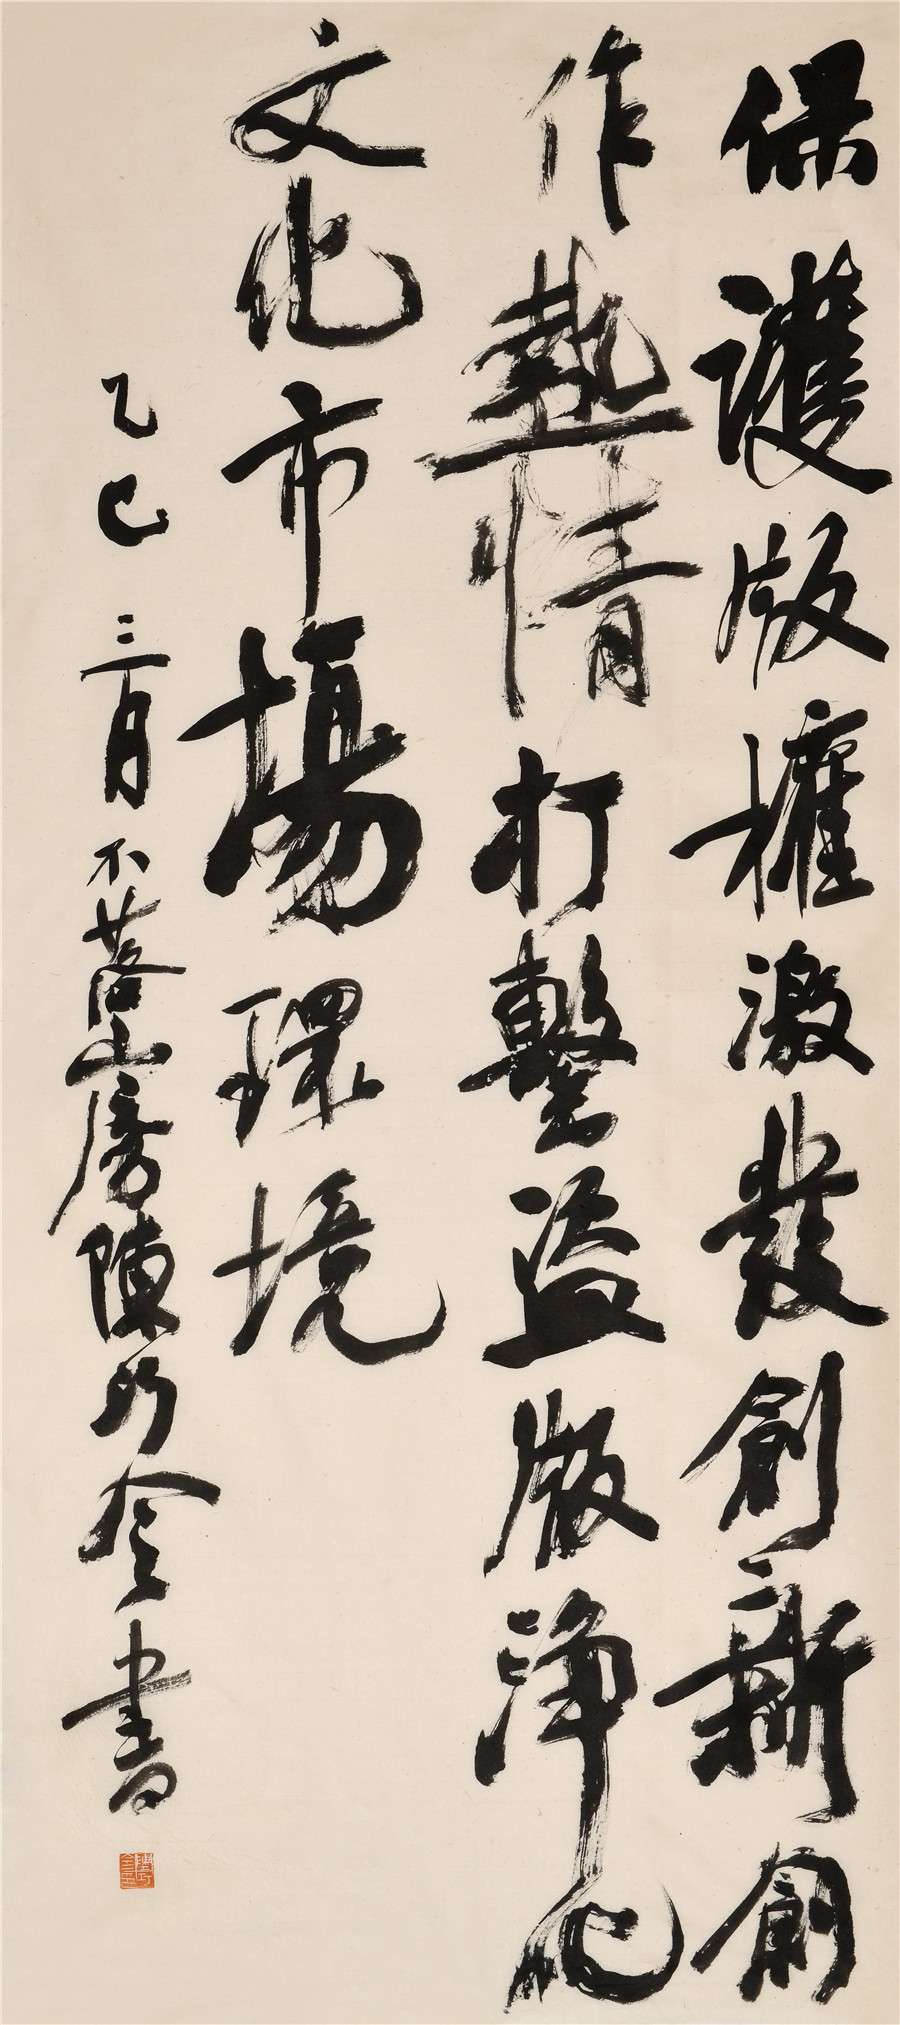 保護版權激發創新創
作熱情打擊盜版淨化
文化市場環境
乙巳三月不落山房陳金書